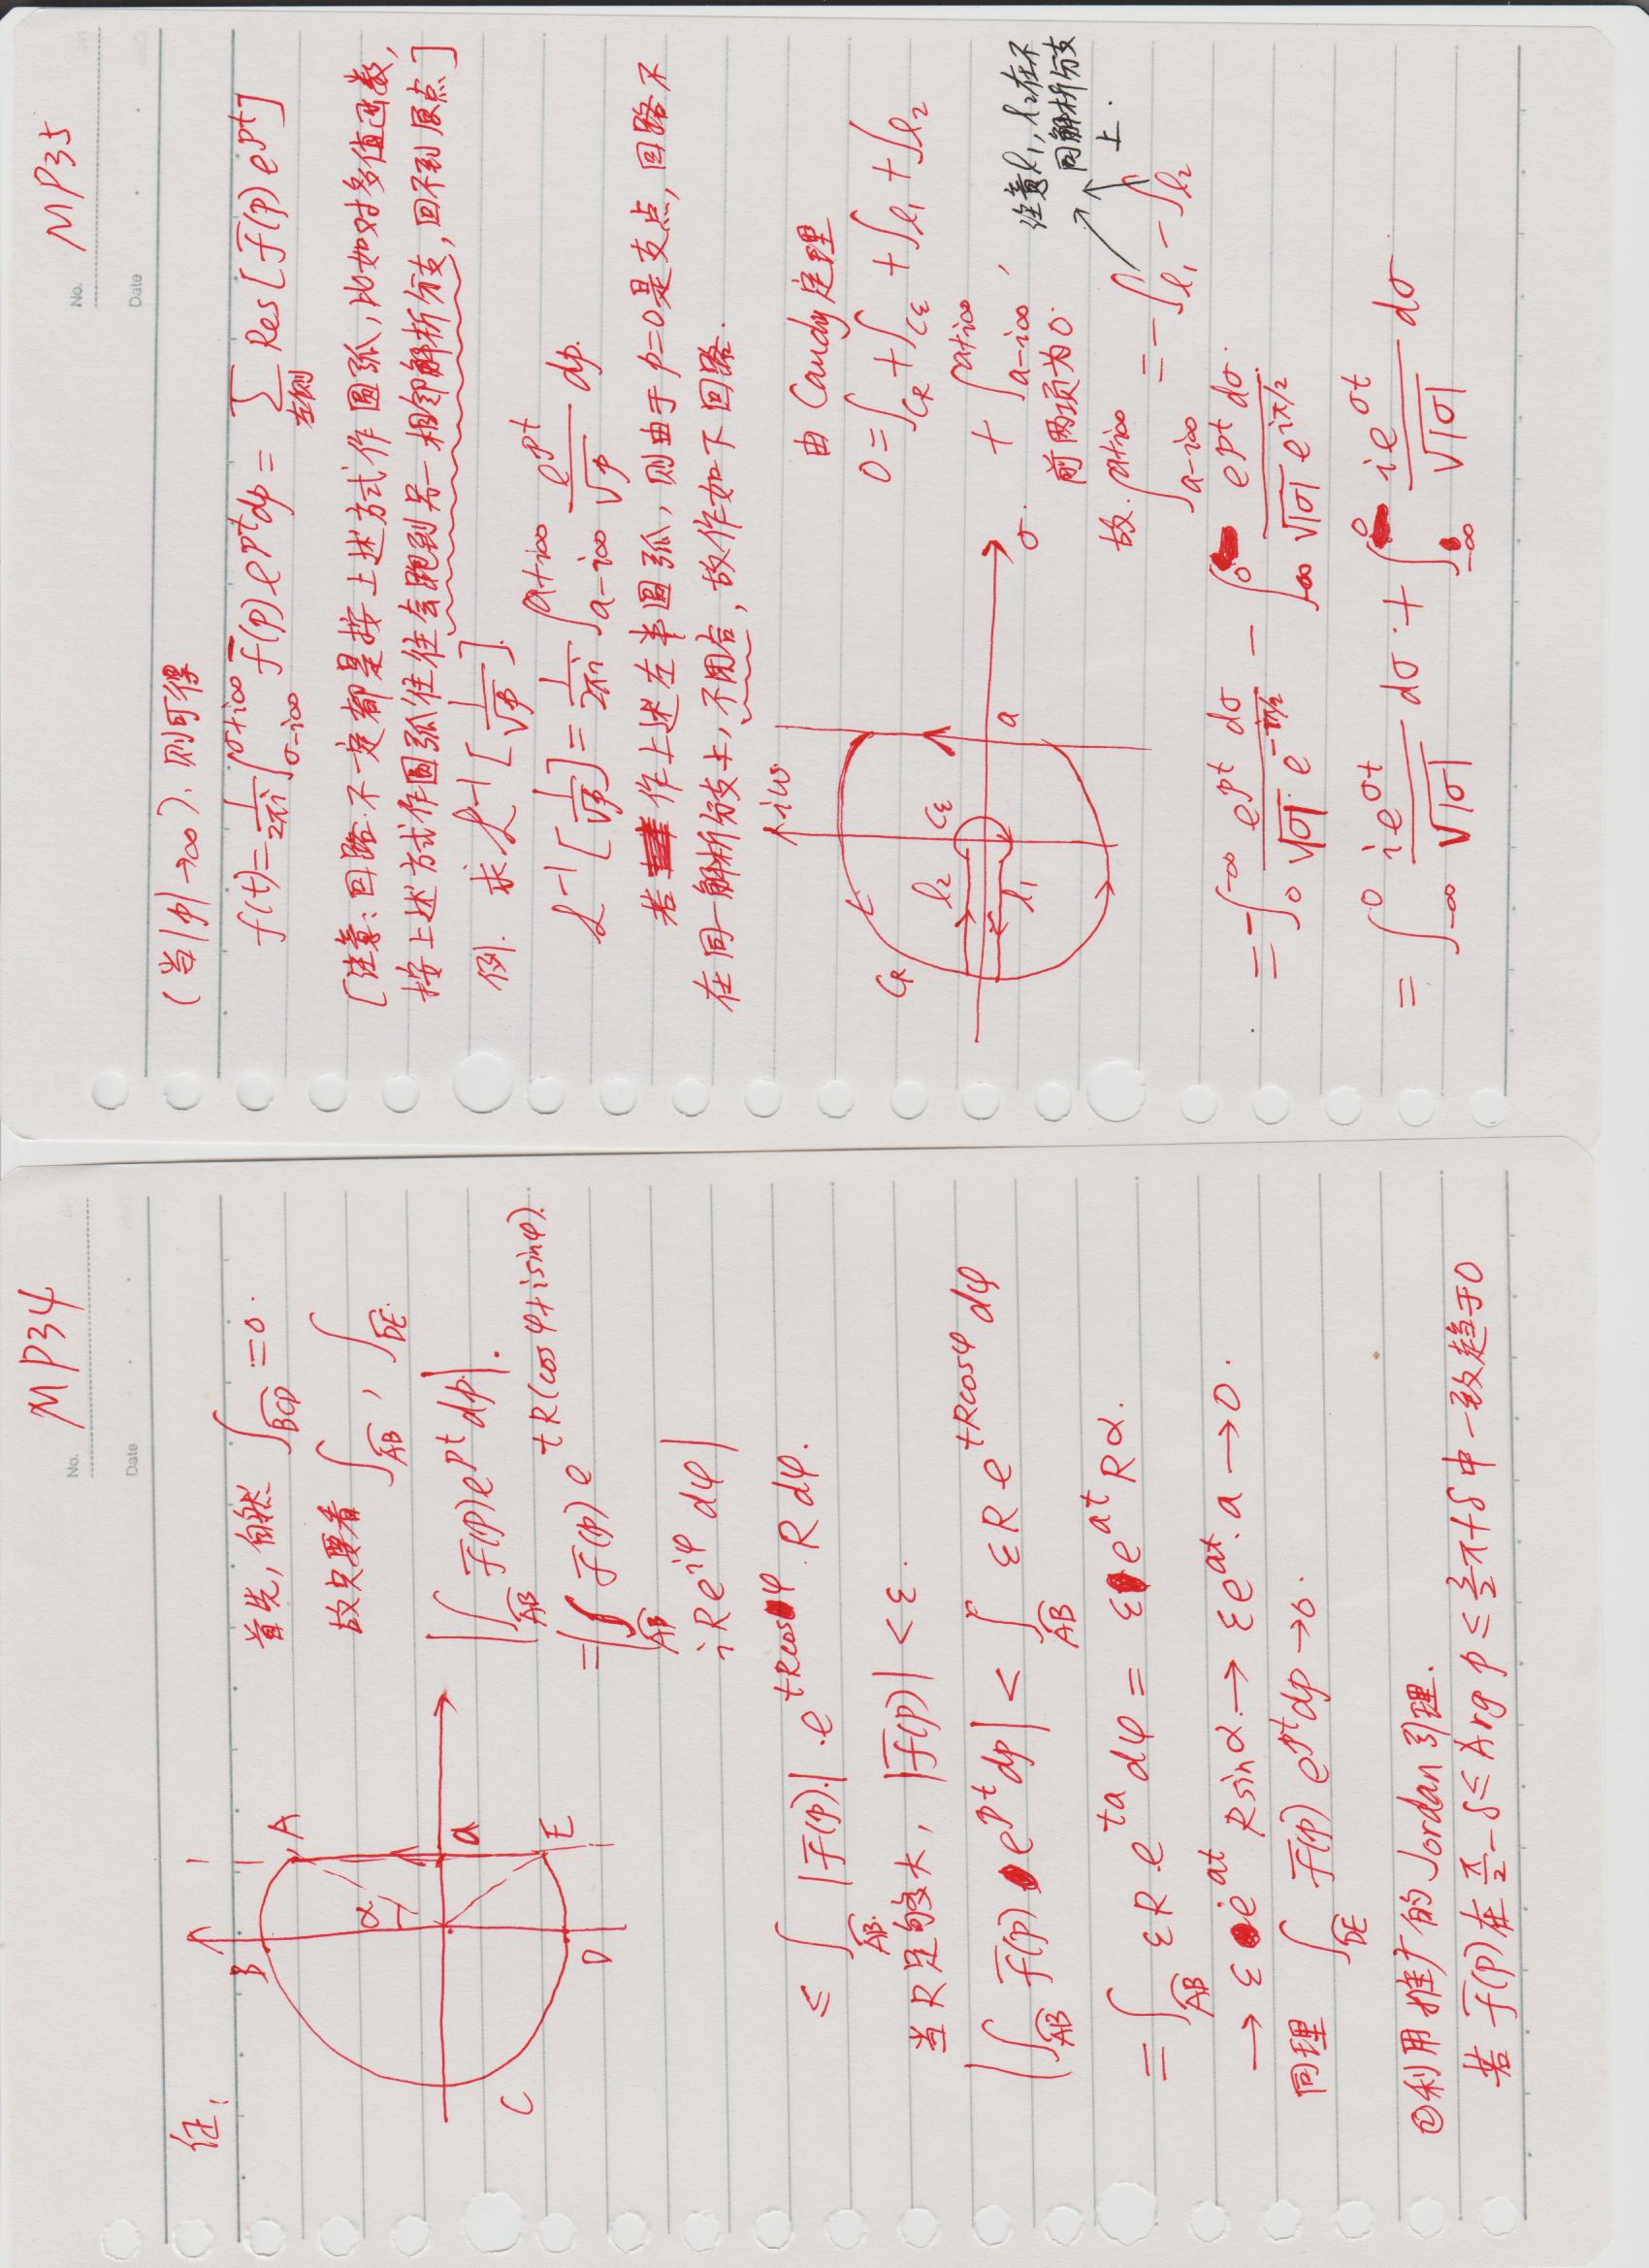 No. MP34
Date
证:
B
A
α
a
C
E
D
首先, 自然 ∫_{BCD} = 0.
故只要看 ∫_{AB}, ∫_{DE}.
|∫_{AB} F̄(p)e^{pt}dp|.
=|∫_{AB} F̄(p) e^{tR(cosφ+isinφ)}.
iRe^{iφ} dφ|
≤ ∫_{AB.} |F̄(p).|·e^{tRcosφ} R dφ.
当R足够大, |F̄(p)| < ε.
|∫_{AB} F̄(p) e^{pt}dp| < ∫_{AB} εR e^{tRcosφ} dφ
= ∫_{AB} εR e^{ta} dφ = ε e^{at} Rα.
→ ε e^{at} Rsinα → εe^{at}.a → 0.
同理 ∫_{DE} F̄(p) e^{pt}dp → 0.
②利用推广的Jordan引理.
若 F̄(p) 在 π/2 - δ ≤ Arg p ≤ 3/2 π + δ 中一致趋于0
No. MP35
Date
(当|p|→∞). 则可得
f(t) = 1/2πi ∫_{σ-i∞}^{σ+i∞} F̄(p) e^{pt}dp = ∑_{左侧} Res[F̄(p) e^{pt}]
[注意: 回路不一定都是按上述方式作圆弧, 比如对多值函数,
按上述方式作圆弧往往会跑到另一相邻解析分支, 回不到原点]
例. 求 ℒ^{-1}[1/√p].
ℒ^{-1}[1/√p] = 1/2πi ∫_{a-i∞}^{a+i∞} e^{pt}/√p dp.
若 作上述左半圆弧, 则由于p=0是支点, 回路不
在同一解析分支上, 不闭合, 故作如下回路.
iω
C_R
l_2
C_ε
l_1
a
σ.
由 Cauchy定理
0 = ∫_{C_R} + ∫_{C_ε} + ∫_{l_1} + ∫_{l_2}
+ ∫_{a-i∞}^{a+i∞},
前两项为0.
注意l_1, l_2在不
同解析分支
上.
故. ∫_{a-i∞}^{a+i∞} = -∫_{l_1} - ∫_{l_2}
= -∫_0^{-∞} e^{pt} dσ/√|σ| e^{-iπ/2} - ∫_{-∞}^0 e^{pt} dσ/√|σ| e^{iπ/2}
= ∫_{-∞}^0 ie^{σt}/√|σ| dσ + ∫_{-∞}^0 ie^{σt}/√|σ| dσ